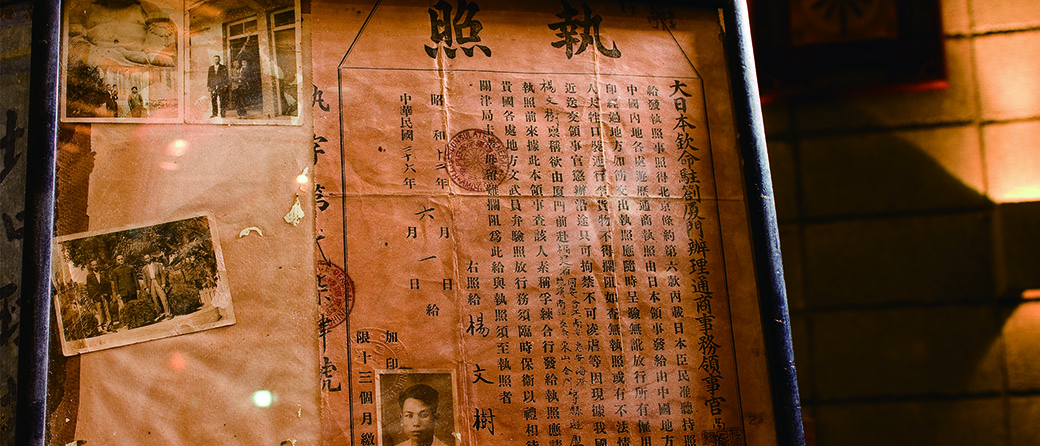 執照
大日本欽命駐劄廈門辦理通商事務領事官高
給發執照事照得北京條約第六款內載日本臣民准聽持照
中國內地各處遊歷通商執照由日本領事發給由中國地方
印經過地方加衝交出執照應隨時呈驗無訛放行所有僱用
人夫牲口裝運行李貨物不得攔阻如查無執照或有不法情
近送交領事官懲辦沿途只可拘禁不可凌虐等因現據我國
楊文樹稟稱欲由廈門前赴福建省
執照前來據此本領事查該人素稱孚練合行發給執照應
貴國各處地方文武員弁驗照放行務須臨時保衛以禮相待
關津局卡毋稍留難攔阻為此給與執照須至執照者
右照給 楊文樹
昭和十二年 六月一日給
中華民國二十六年 月 日
加印
限十三個月繳
執字第 號